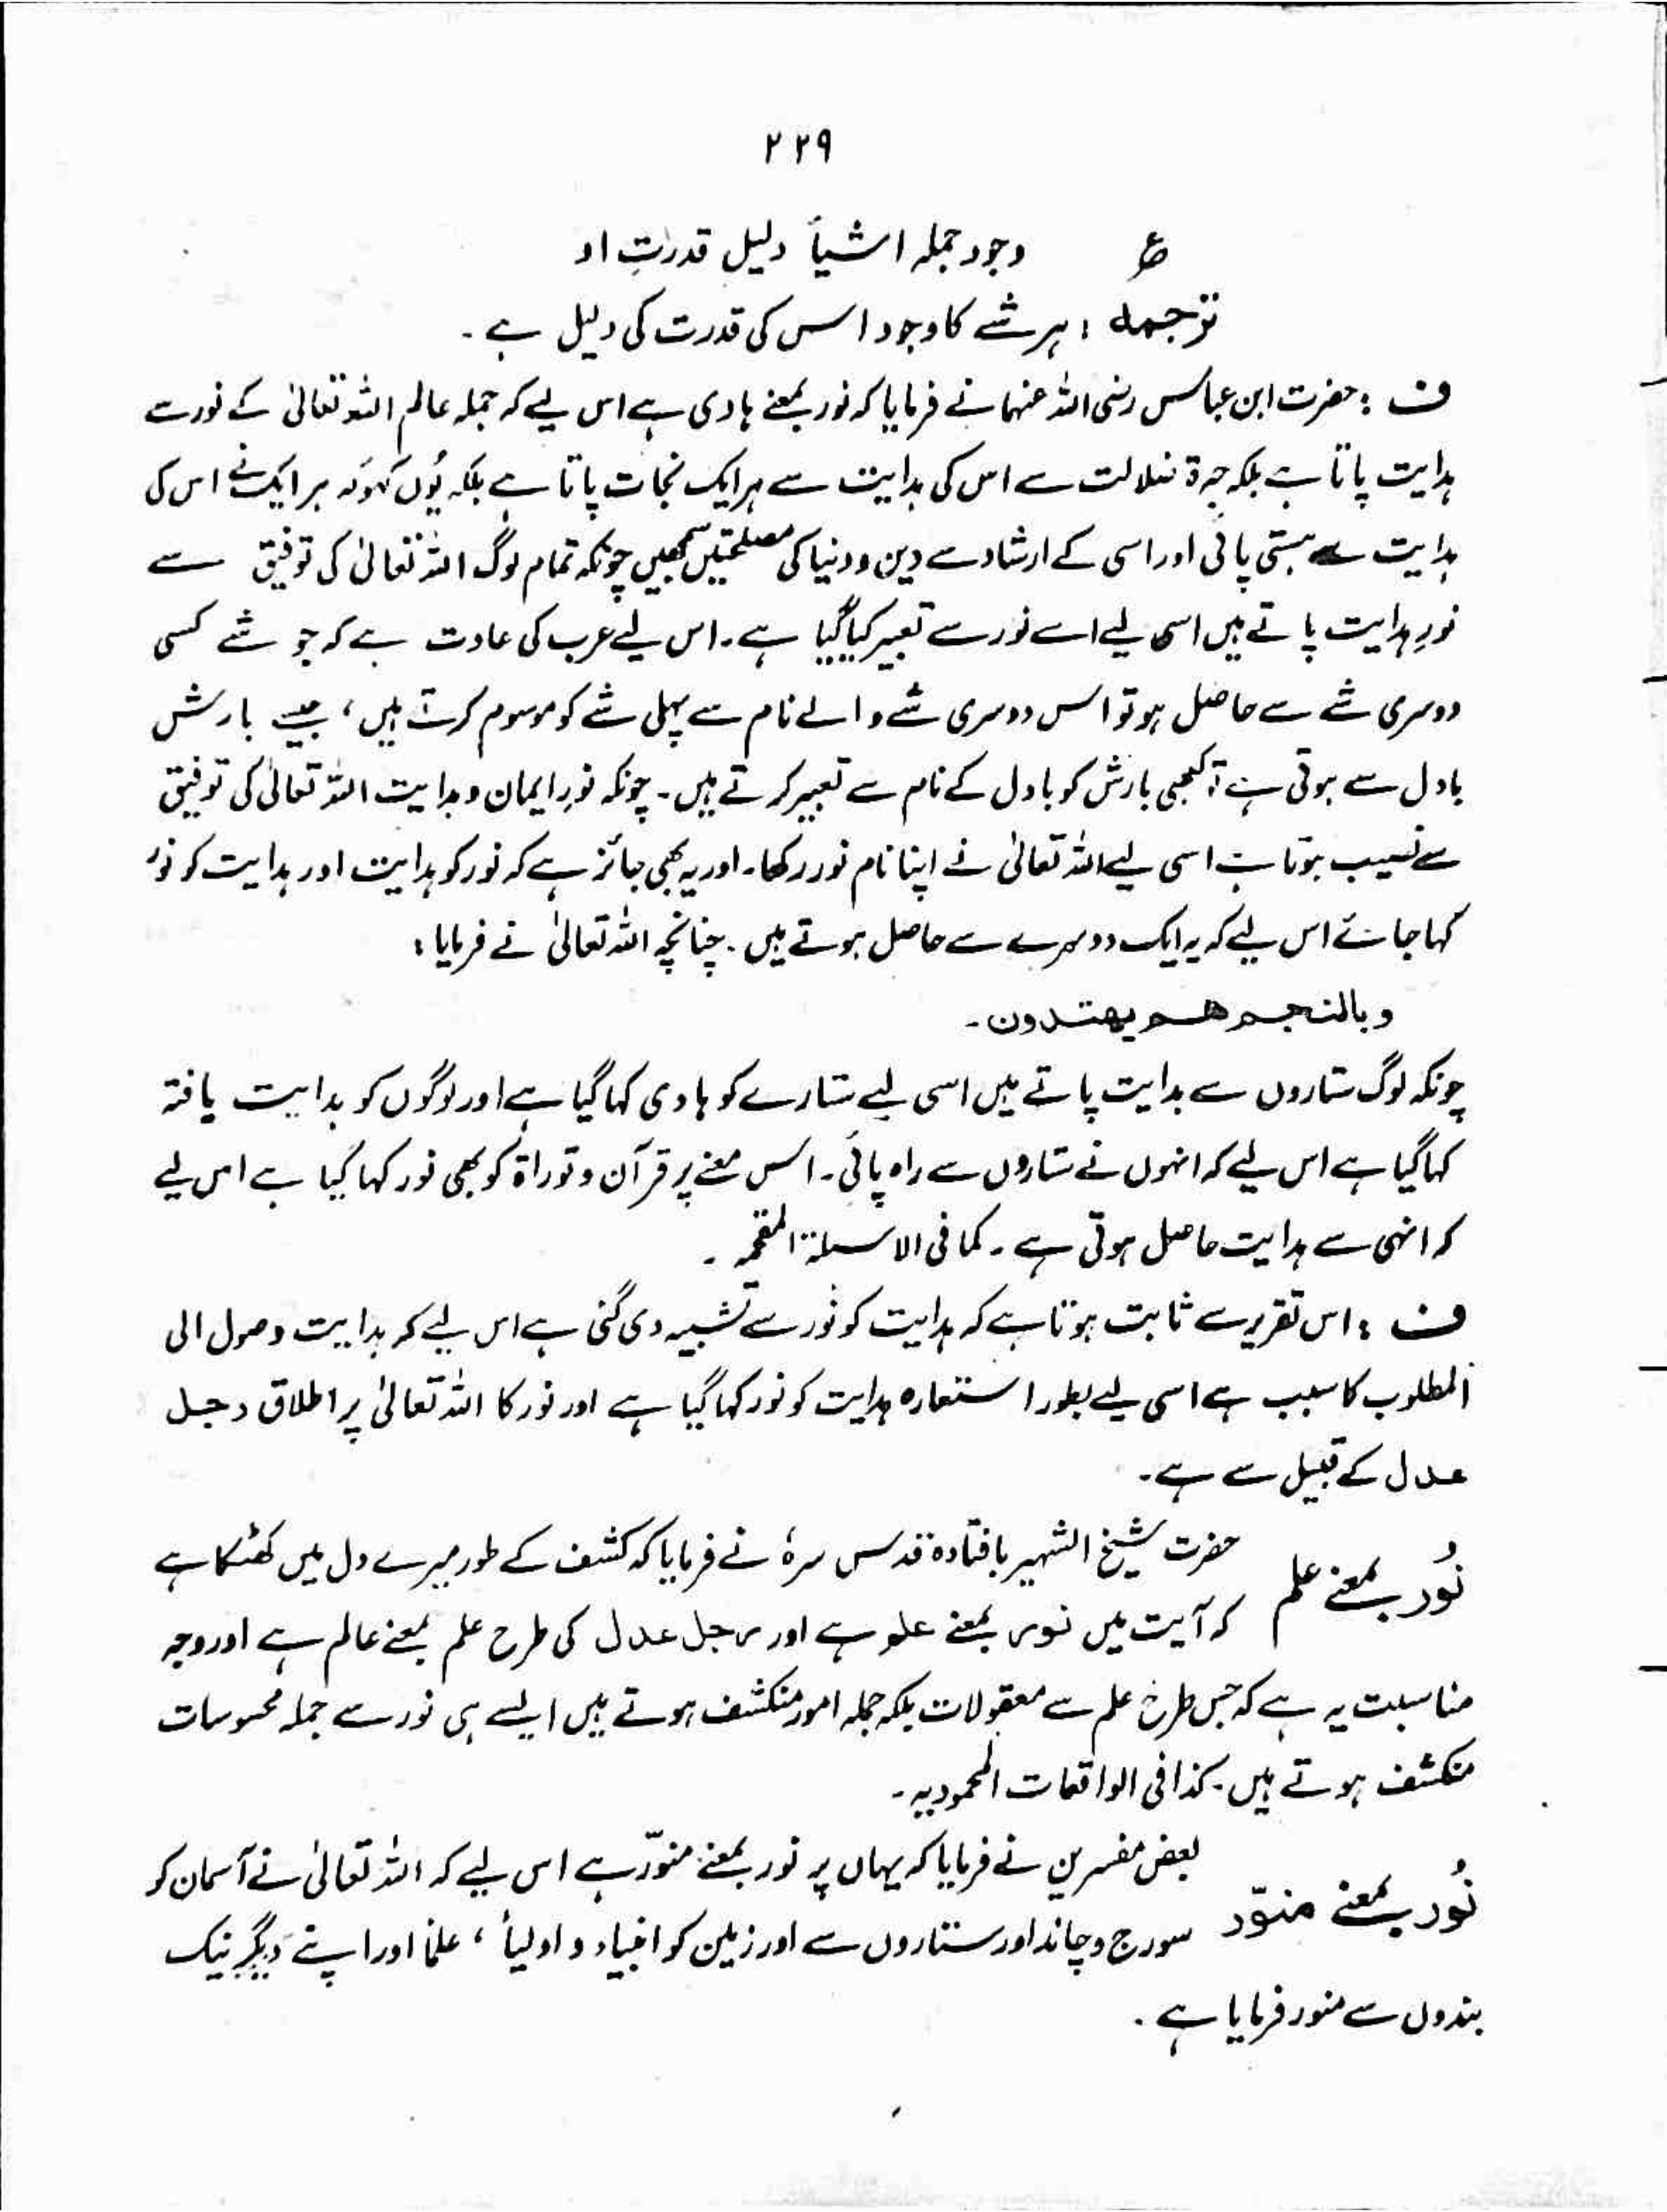 ۲۲۹
ع وجود جملہ اشیأ دلیل قدرتِ او
ترجمہ : ہر شے کا وجود اس کی قدرت کی دلیل ہے ۔
ف : حضرت ابن عباس رضی اللہ عنہما نے فرمایا کہ نور بمعنے ہادی ہے اس لیے کہ جملہ عالم اللہ تعالیٰ کے نور سے
ہدایت پاتا ہے بلکہ حیرۃ ضلالت سے اس کی ہدایت سے ہر ایک نجات پاتا ہے بلکہ یُوں کہو کہ ہر ایک نے اس کی
ہدایت سے ہستی پائی اور اسی کے ارشاد سے دین و دنیا کی مصلحتیں سمجھیں چونکہ تمام لوگ اللہ تعالیٰ کی توفیق سے
نورِ ہدایت پاتے ہیں اسی لیے اسے نور سے تعبیر کیا گیا ہے ۔ اس لیے عرب کی عادت ہے کہ جو شے کسی
دوسری شے سے حاصل ہو تو اس دوسری شے والے نام سے پہلی شے کو موسوم کرتے ہیں ، جیسے بارش
بادل سے ہوتی ہے تو کبھی بارش کو بادل کے نام سے تعبیر کرتے ہیں ۔ چونکہ نورِ ایمان و ہدایت اللہ تعالیٰ کی توفیق
سے نصیب ہوتا ہے اسی لیے اللہ تعالیٰ نے اپنا نام نور رکھا ۔ اور یہ بھی جائز ہے کہ نور کو ہدایت اور ہدایت کو نور
کہا جائے اس لیے کہ یہ ایک دوسرے سے حاصل ہوتے ہیں ۔ چنانچہ اللہ تعالیٰ نے فرمایا :
وبالنجم هم يهتدون ۔
چونکہ لوگ ستاروں سے ہدایت پاتے ہیں اسی لیے ستارے کو ہادی کہا گیا ہے اور لوگوں کو ہدایت یافتہ
کہا گیا ہے اس لیے کہ انہوں نے ستاروں سے راہ پائی ۔ اس معنے پر قرآن و توراۃ کو بھی نور کہا گیا ہے اس لیے
کہ انہی سے ہدایت حاصل ہوتی ہے ۔ کما فی الاسئلۃ المقحمہ ۔
ف : اس تقریر سے ثابت ہوتا ہے کہ ہدایت کو نُور سے تشبیہ دی گئی ہے اس لیے کہ ہدایت وصول الی
المطلوب کا سبب ہے اسی لیے بطور استعارہ ہدایت کو نور کہا گیا ہے اور نور کا اللہ تعالیٰ پر اطلاق رجل
عدل کے قبیل سے ہے ۔
نُور بمعنے علم حضرت شیخ الشہیر بافتادہ قدس سرہٗ نے فرمایا کہ کشف کے طور میرے دل میں کھٹکا ہے
کہ آیت میں نور بمعنے علم ہے اور رجل عدل کی طرح علم بمعنے عالم ہے اور وجہ
مناسبت یہ ہے کہ جس طرح علم سے معقولات بلکہ جملہ امور منکشف ہوتے ہیں ایسے ہی نور سے جملہ محسوسات
منکشف ہوتے ہیں ۔ کذا فی الواقعات المحمودیہ ۔
نُور بمعنے منوّر بعض مفسرین نے فرمایا کہ یہاں پر نور بمعنے منوّر ہے اس لیے کہ اللہ تعالیٰ نے آسمان کو
سورج و چاند اور ستاروں سے اور زمین کو انبیاء و اولیأ ، علمأ اور اپنے دیگر نیک
بندوں سے منور فرمایا ہے ۔